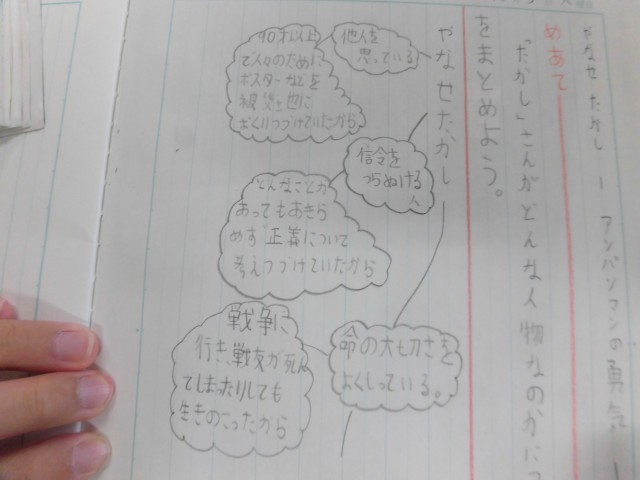 やなせ たかし ー アンパンマンの勇気 ー
めあて
「たかし」さんがどんな人物なのかにつ
をまとめよう。
やなせたかし
他人を
思っている
90才以上
で人々のために
ポスターなどを
被災地に
おくりつづけていたから
信令を
つらぬける
人
どんなことが
あってもあきら
めず正義について
考えつづけていたから
命の大切さを
よくしっている。
戦争に
行き、戦友が死ん
でしまったりしても
生きのこったから